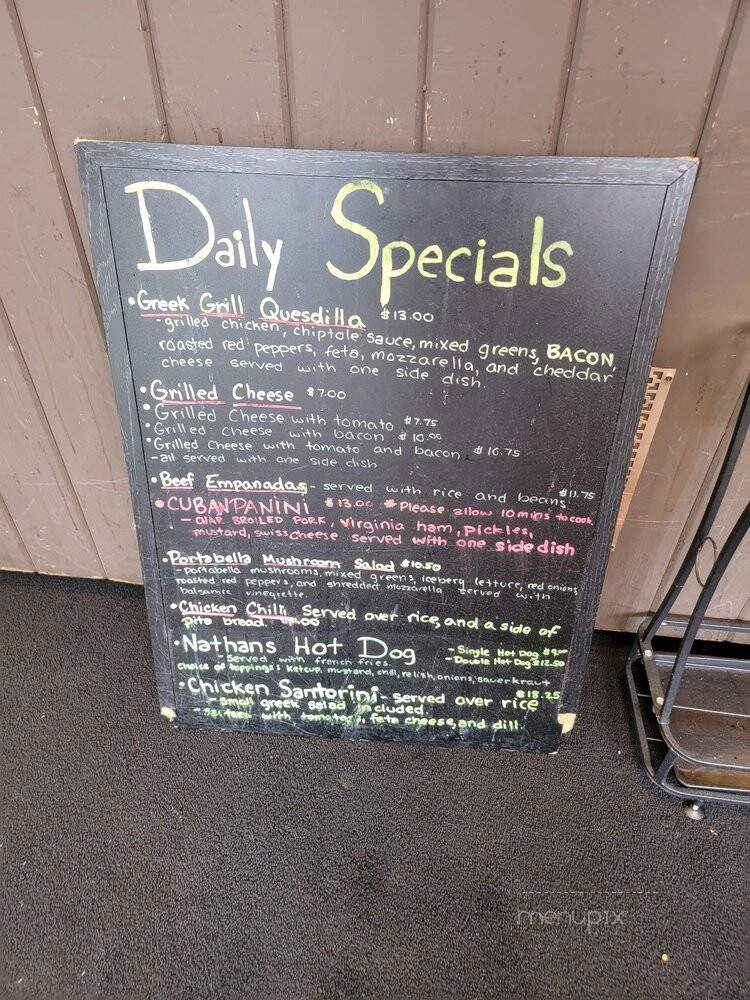 Daily Specials
•Greek Grill Quesdilla $13.00
-grilled chicken, chiptole sauce, mixed greens, BACON,
roasted red peppers, feta, mozzarella, and cheddar
cheese served with one side dish.
•Grilled Cheese $7.00
•Grilled Cheese with tomato $7.75
•Grilled cheese with bacon $10.00
•Grilled Cheese with tomato and bacon $10.75
-all served with one side dish
•Beef Empanadas- served with rice and beans $11.75
•CUBAN PANINI $13.00 *Please allow 10 mins to cook
- CHAR BROILED PORK, Virginia ham, pickles,
mustard, swiss cheese served with one side dish
•Portabella Mushroom Salad $10.50
-portabella mushrooms, mixed greens, iceberg lettuce, red onions,
roasted red peppers, and shredded mozzarella served with
balsamic vinegrette.
•Chicken Chilli Served over rice, and a side of
pita bread.
•Nathans Hot Dog -Single Hot Dog $9.00
-Served with french fries. -Double Hot Dog $12.50
choice of toppings: Ketcup, mustard, chili, relish, onions, sauerkraut
•Chicken Santorini- served over rice $18.25
-small greek salad included.
with tomatoes, feta cheese, and dill.
menupix